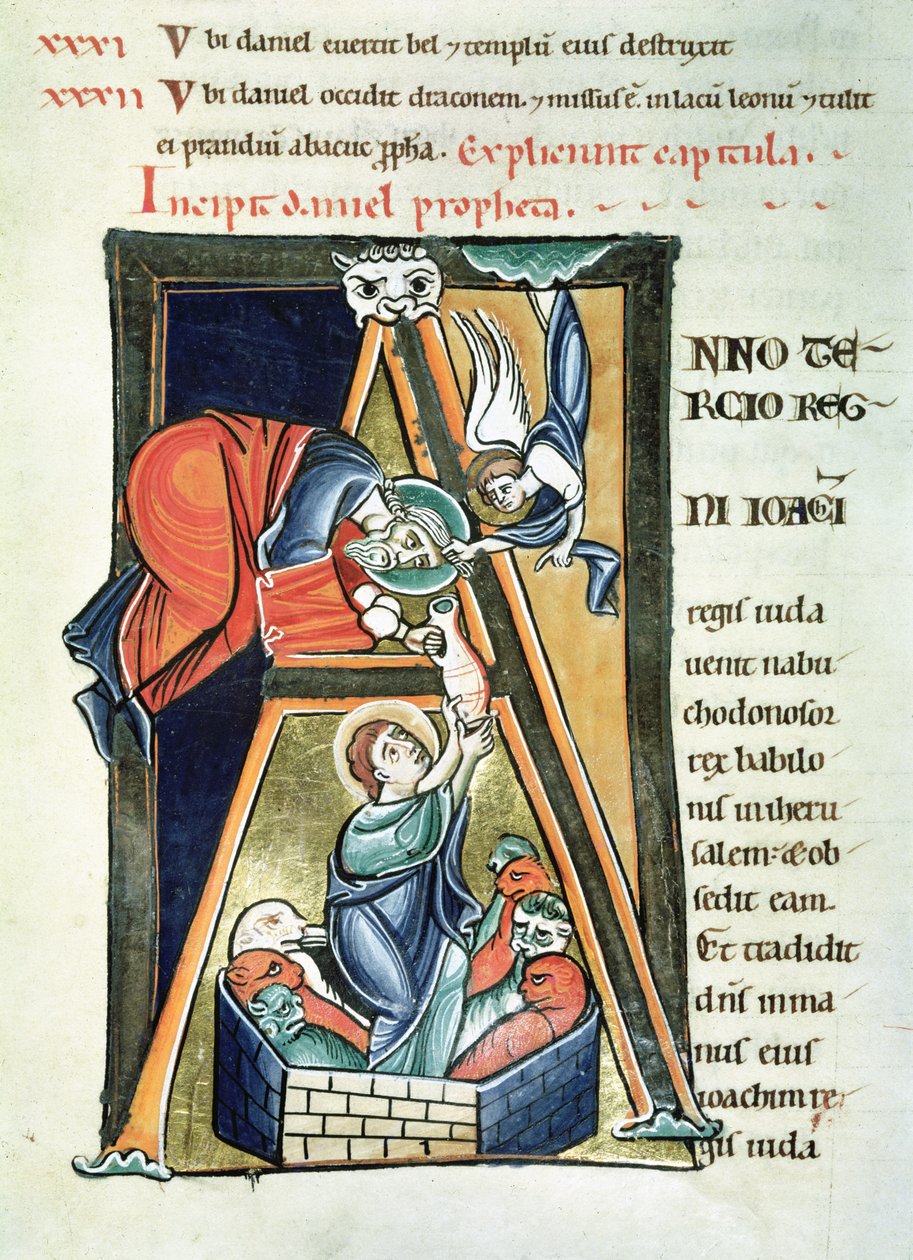 xxxi Vbi daniel euertit bel ⁊ templū eius destruxit
xxxii Vbi daniel occidit draconem. ⁊ missus ē. in lacū leonū ⁊ tulit
ei prandiū abacuc ꝓpha. Expliciunt capitula.
Incipit daniel propheta.
NNO TE-
RCIO REG-
NI IOACHĪ
regis iuda
uenit nabu-
chodonosor
rex babilo-
nis in iheru-
salem: & ob-
sedit eam.
Et tradidit
dn̄s in ma-
nus eius
ioachim re-
gis iuda